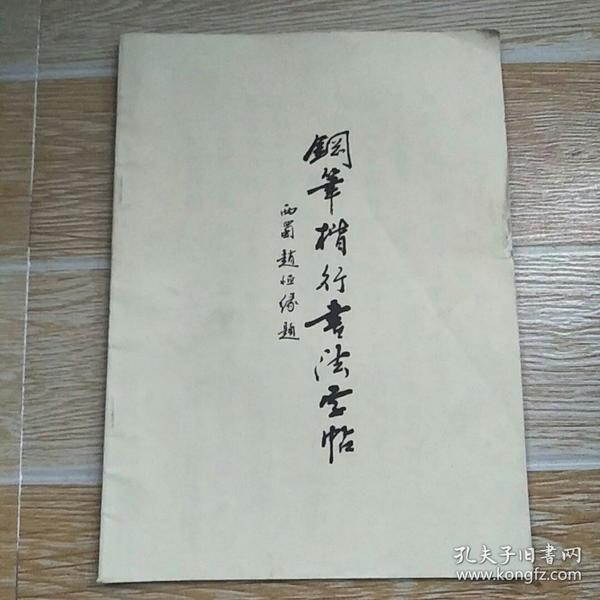 鋼筆楷行書法字帖
西蜀趙恒缘題
孔夫子旧書网
www.kongfz.com